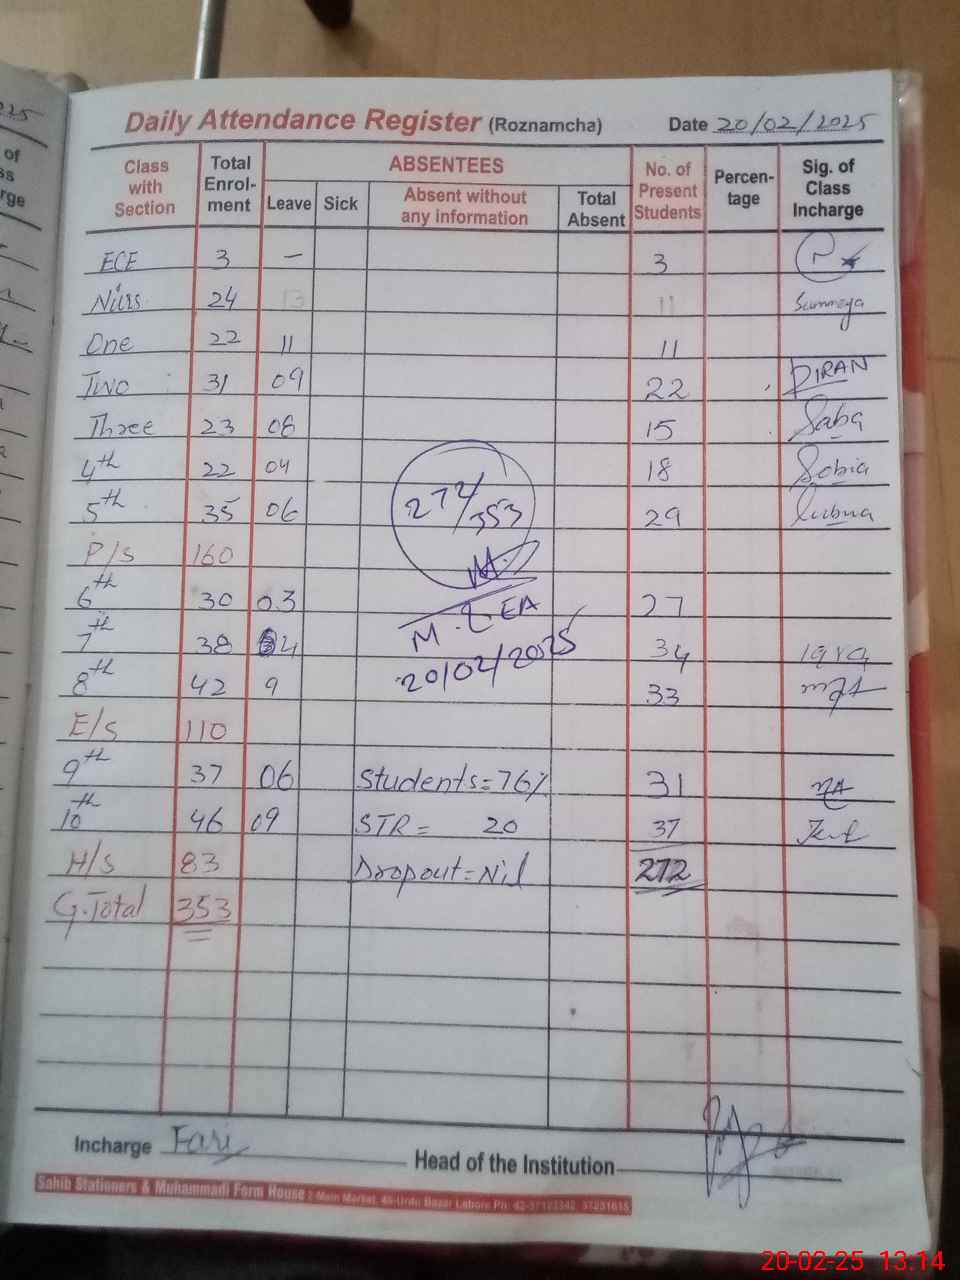 Daily Attendance Register (Roznamcha) Date 20/02/2025
Class with Section Total Enrol-ment ABSENTEES No. of Present Students Percen-tage Sig. of Class Incharge
Leave Sick Absent without any information Total Absent
ECE 3 – 3
Nurs. 24 13 11 Summeya
One 22 11 11
Two 31 09 22
Three 23 08 15 Saba
4th 22 04 18 Sobia
5th 35 06 29 Lubna
P/S 160
272/353
6th 30 03 27
M.EA
7th 38 04 34 iqra
20/02/2025
8th 42 9 33
E/S 110
9th 37 06 Students=76% 31
10th 46 09 STR= 20 37
H/S 83 Dropout=Nil 272
G.Total 353
Incharge Fari Head of the Institution
Sahib Stationers & Muhammadi Form House 2-Main Market, 40-Urdu Bazar Lahore Ph:
20-02-25 13:14